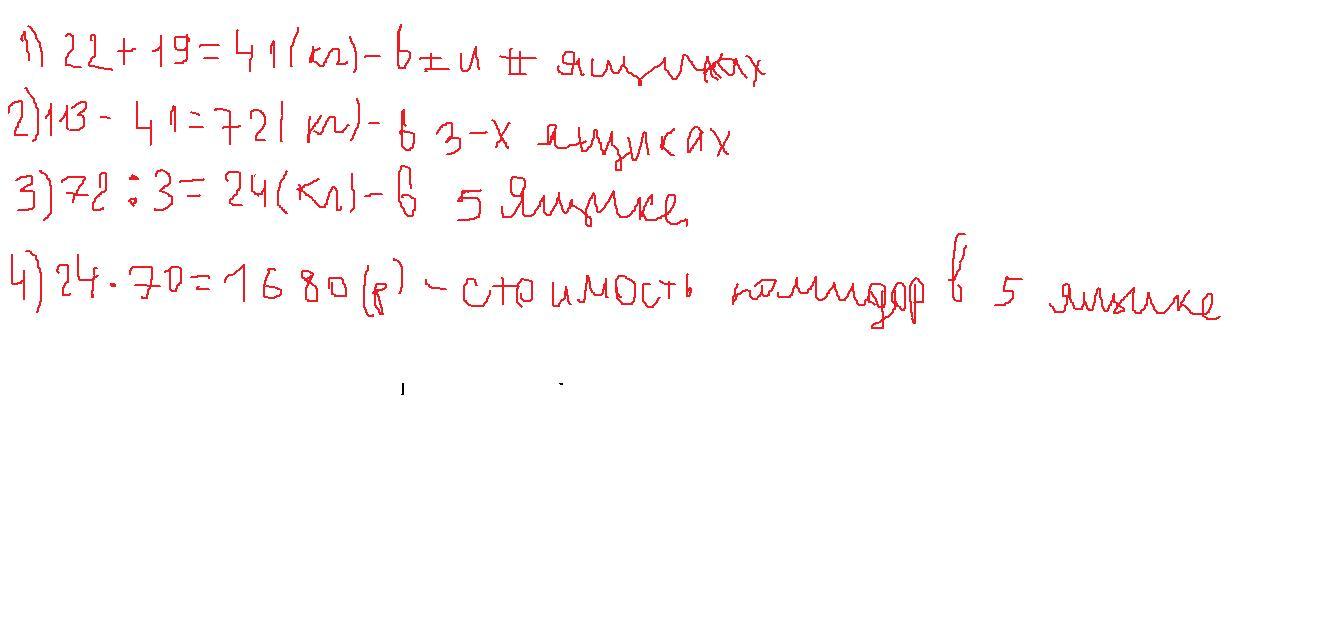 1) 22 + 19 = 41 (кг) - в I и II ящиках
2) 113 - 41 = 72 (кг) - в 3-х ящиках
3) 72 : 3 = 24 (кг) - в 5 ящике
4) 24 · 70 = 1680 (р) - стоимость помидор в 5 ящике